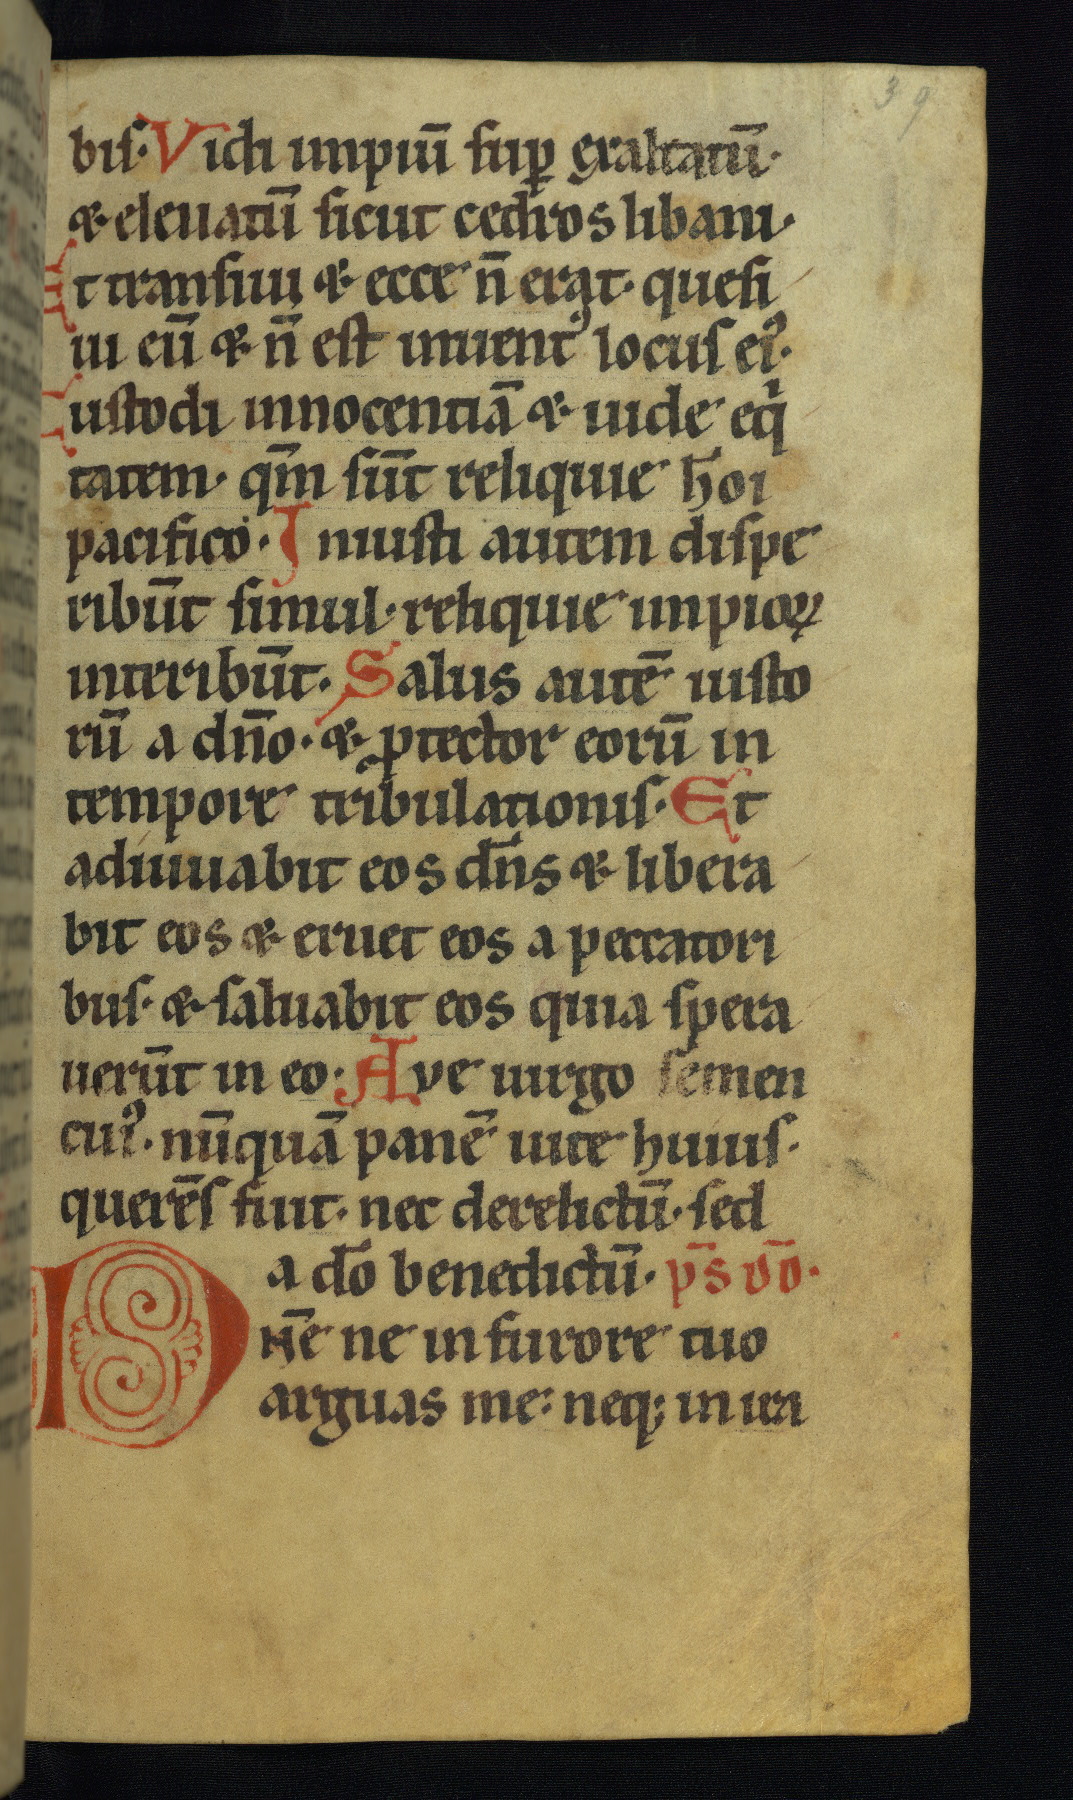 39
bis. Vidi impiū sup̱ exaltatū.
& eleuatū sicut cedros libani.
Et transiui & ecce n̄ erat. quesi
ui eū & n̄ est inuentꝰ locus eiꝰ.
Custodi innocentiā & uide eqͥ
tatem. qm̄ sūt reliquie ho̅i
pacifico. Iniusti autem dispe
ribūt simul. reliquie impioꝝ
interibūt. Salus autē iusto
rū a dn̄o. & ꝓtector eorū in
tempore tribulationis. Et
adiuuabit eos dn̄s & libera
bit eos & eruet eos a peccatori
bus. & saluabit eos quia spera
uerūt in eo. Ave uirgo semen
cuiꝰ. nūquā panē uite huius.
querēs fiut. nec derelictū. sed
a dōo benedictū. p̄s dd̄.
Dn̄e ne in furore tuo
arguas me. neq; in ira